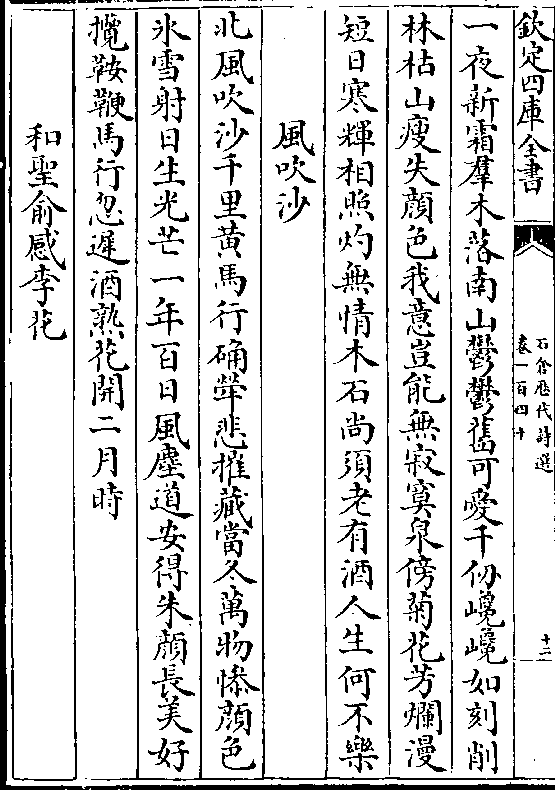 欽定四庫全書
石倉歴代詩選
卷一百四十
十二
一夜新霜羣木落南山鬱鬱舊可愛千仭巉巉如刻削
林枯山瘦失顔色我意豈能無寂寞泉傍菊花芳爛漫
短日寒輝相照灼無情木石尚須老有酒人生何不樂
風吹沙
北風吹沙千里黄馬行确犖悲摧藏當冬萬物慘顔色
氷雪射日生光芒一年百日風塵道安得朱顔長美好
攬鞍鞭馬行忽遲酒熟花開二月時
和聖俞感李花